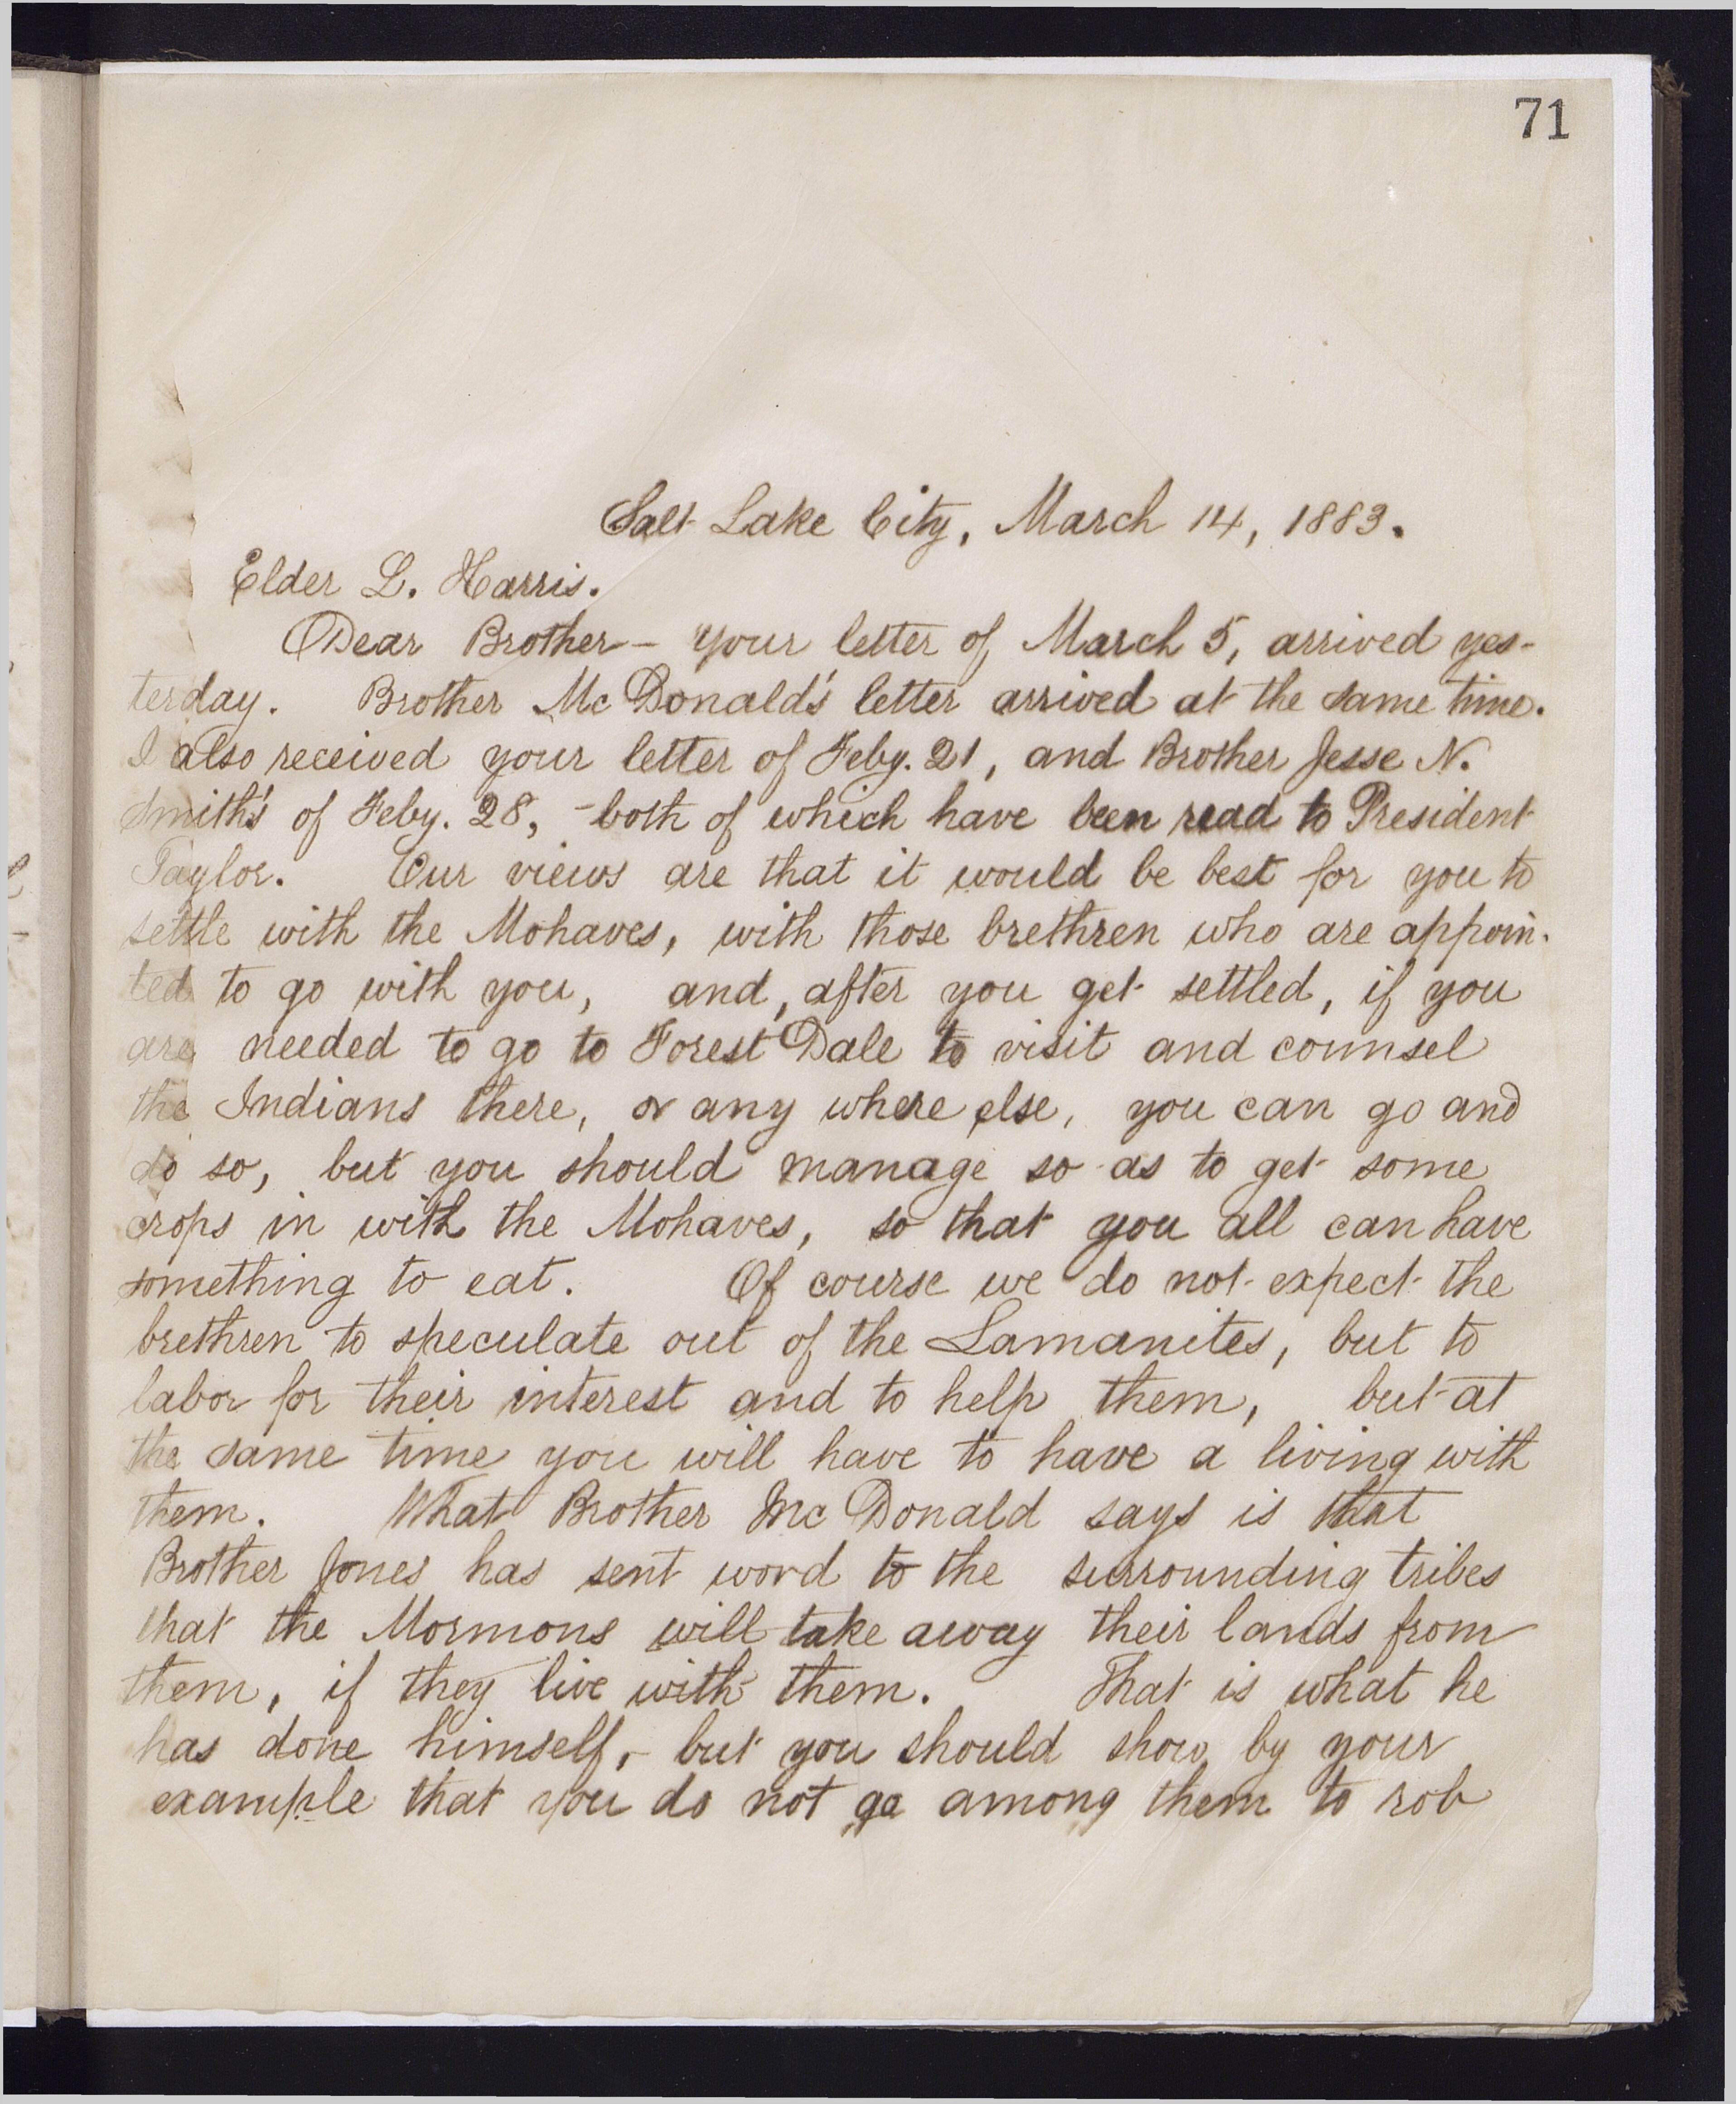 71
Salt Lake City, March 14, 1883.
Elder L. Harris.
Dear Brother - Your letter of March 5, arrived yes-
terday. Brother McDonald's letter arrived at the same time.
I also received your letter of Feby. 21, and Brother Jesse N.
Smith's of Feby. 28, - both of which have been read to President
Taylor. Our views are that it would be best for you to
settle with the Mohaves, with those brethren who are appoin-
ted to go with you, and, after you get settled, if you
are needed to go to Forest Dale to visit and counsel
the Indians there, or any where else, you can go and
do so, but you should manage so as to get some
crops in with the Mohaves, so that you all can have
something to eat. Of course we do not expect the
brethren to speculate out of the Lamanites, but to
labor for their interest and to help them, but at
the same time you will have to have a living with
them. What Brother McDonald says is that
Brother Jones has sent word to the surrounding tribes
that the Mormons will take away their lands from
them, if they live with them. That is what he
has done himself, - but you should show by your
example that you do not go among them to rob